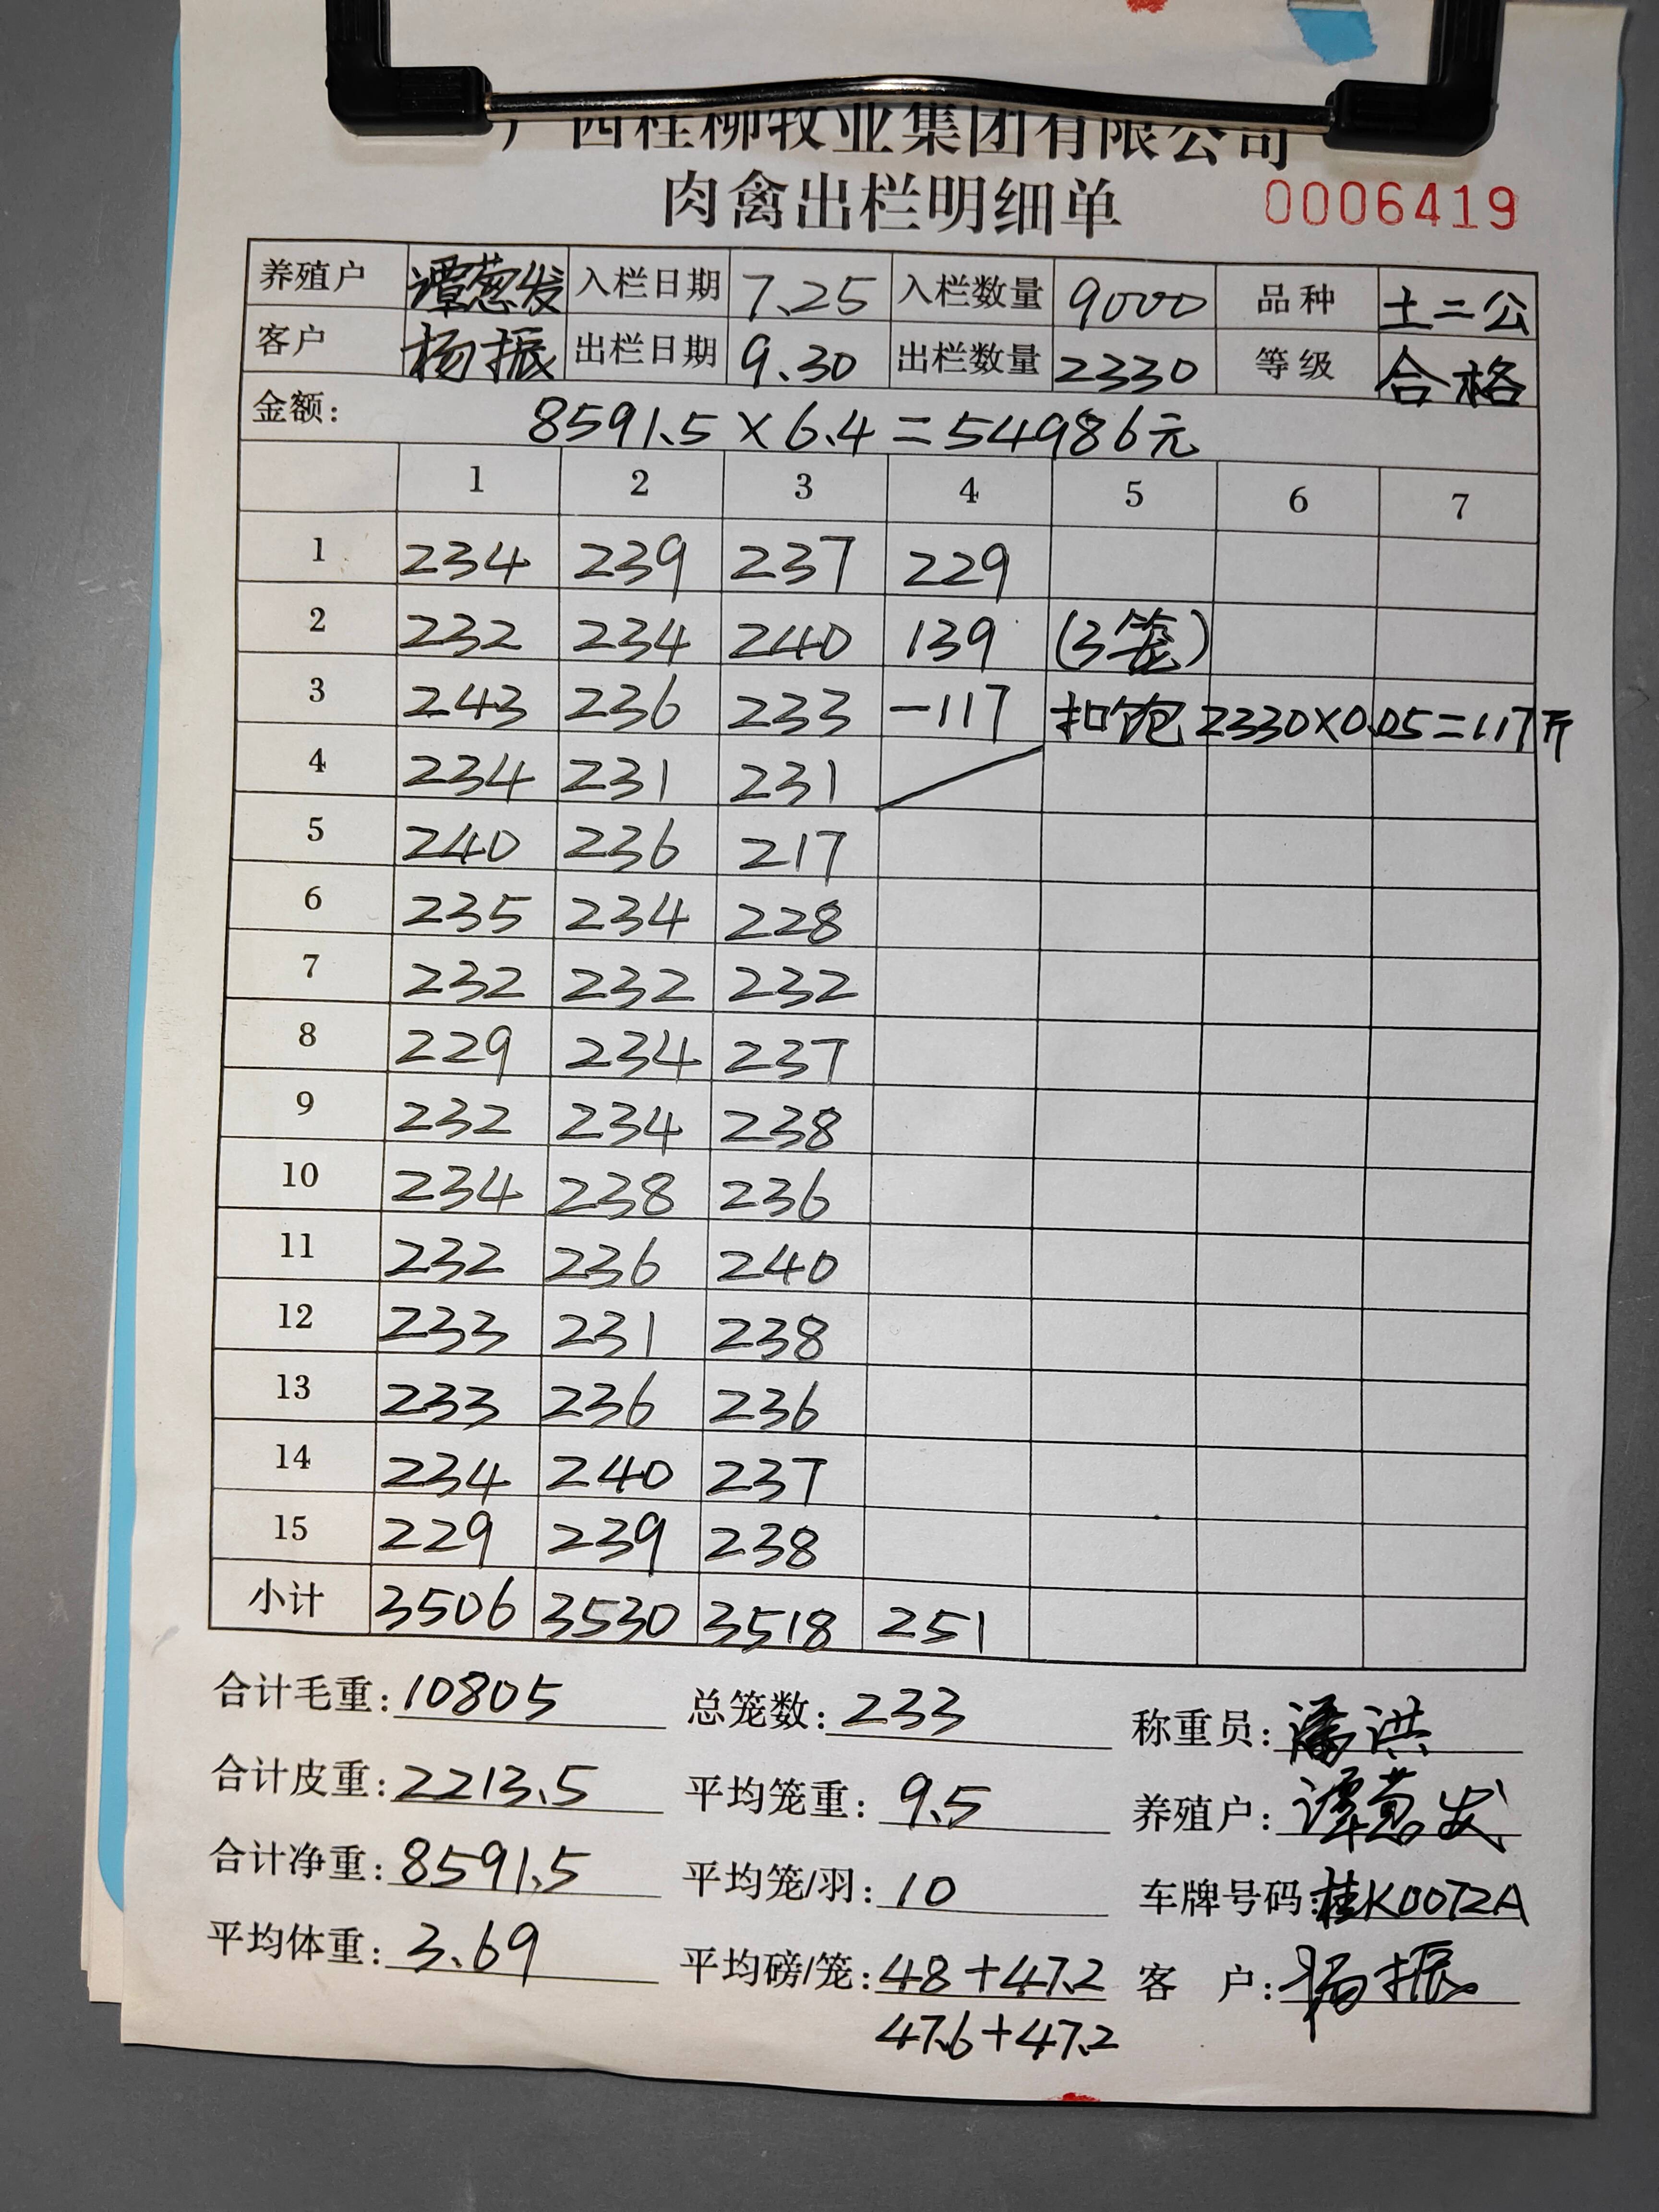 广西桂柳牧业集团有限公司
肉禽出栏明细单 0006419
养殖户 谭葱发 入栏日期 7.25 入栏数量 9000 品种 土二公
客户 杨振 出栏日期 9.30 出栏数量 2330 等级 合格
金额: 8591.5×6.4=54986元
1 2 3 4 5 6 7
1 234 239 237 229
2 232 234 240 139 (3笼)
3 243 236 233 -117 扣饱 2330×0.05=117斤
4 234 231 231
5 240 236 217
6 235 234 228
7 232 232 232
8 229 234 237
9 232 234 238
10 234 238 236
11 232 236 240
12 233 231 238
13 233 236 236
14 234 240 237
15 229 239 238
小计 3506 3530 3518 251
合计毛重: 10805 总笼数: 233 称重员: 潘洪
合计皮重: 2213.5 平均笼重: 9.5 养殖户: 谭葱发
合计净重: 8591.5 平均笼/羽: 10 车牌号码: 桂K00T2A
平均体重: 3.69 平均磅/笼: 48+47.2 客 户: 杨振
47.6+47.2